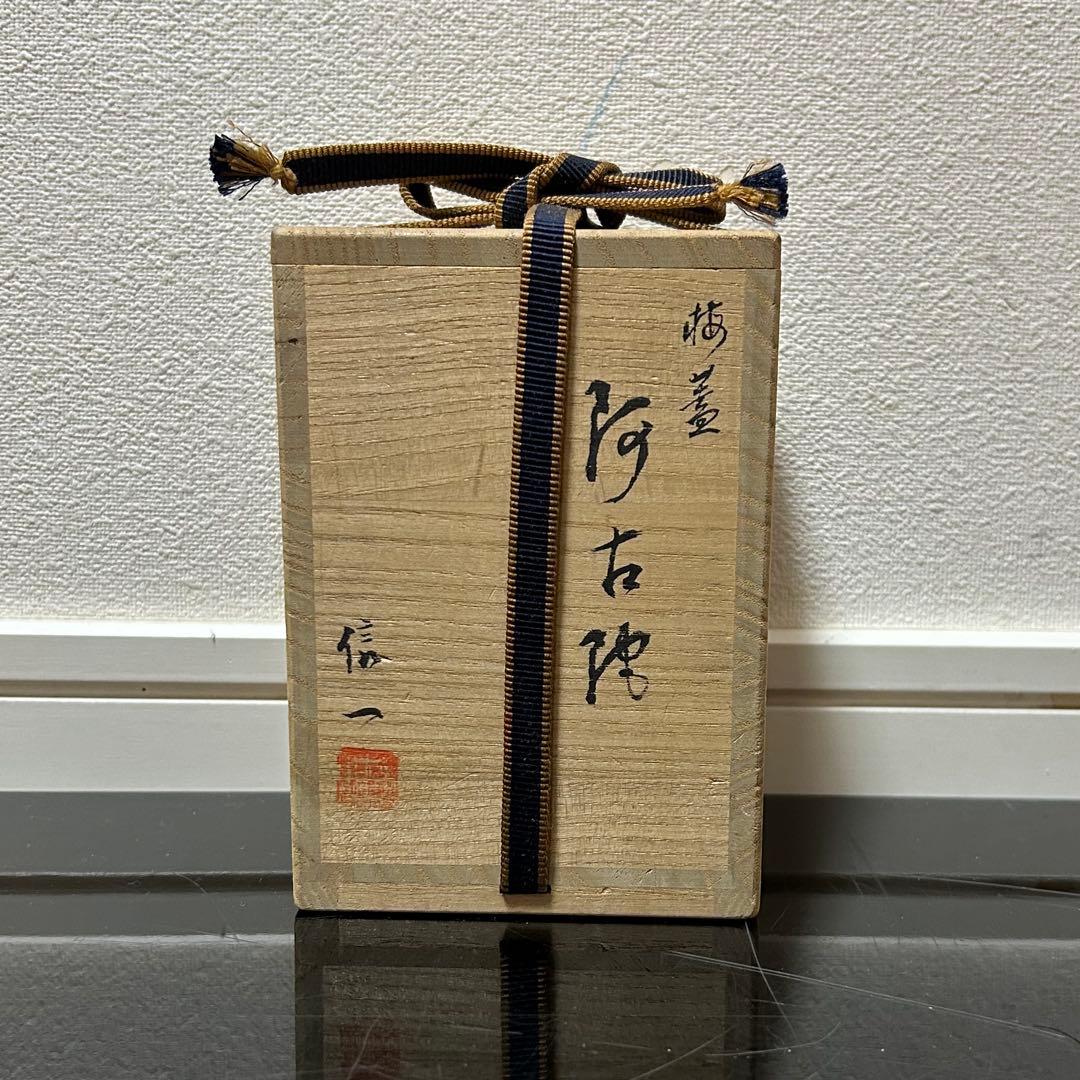 梅蓋
阿古陀
信一